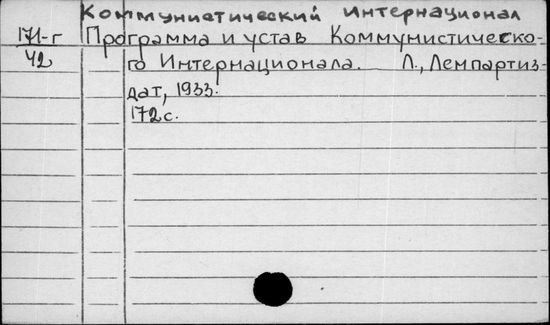 Коммунистический интернационал
171-г Программа и устав Коммунистическо-
42 го Интернационала. Л., Лемпартиз-
дат, 1933.
172 с.